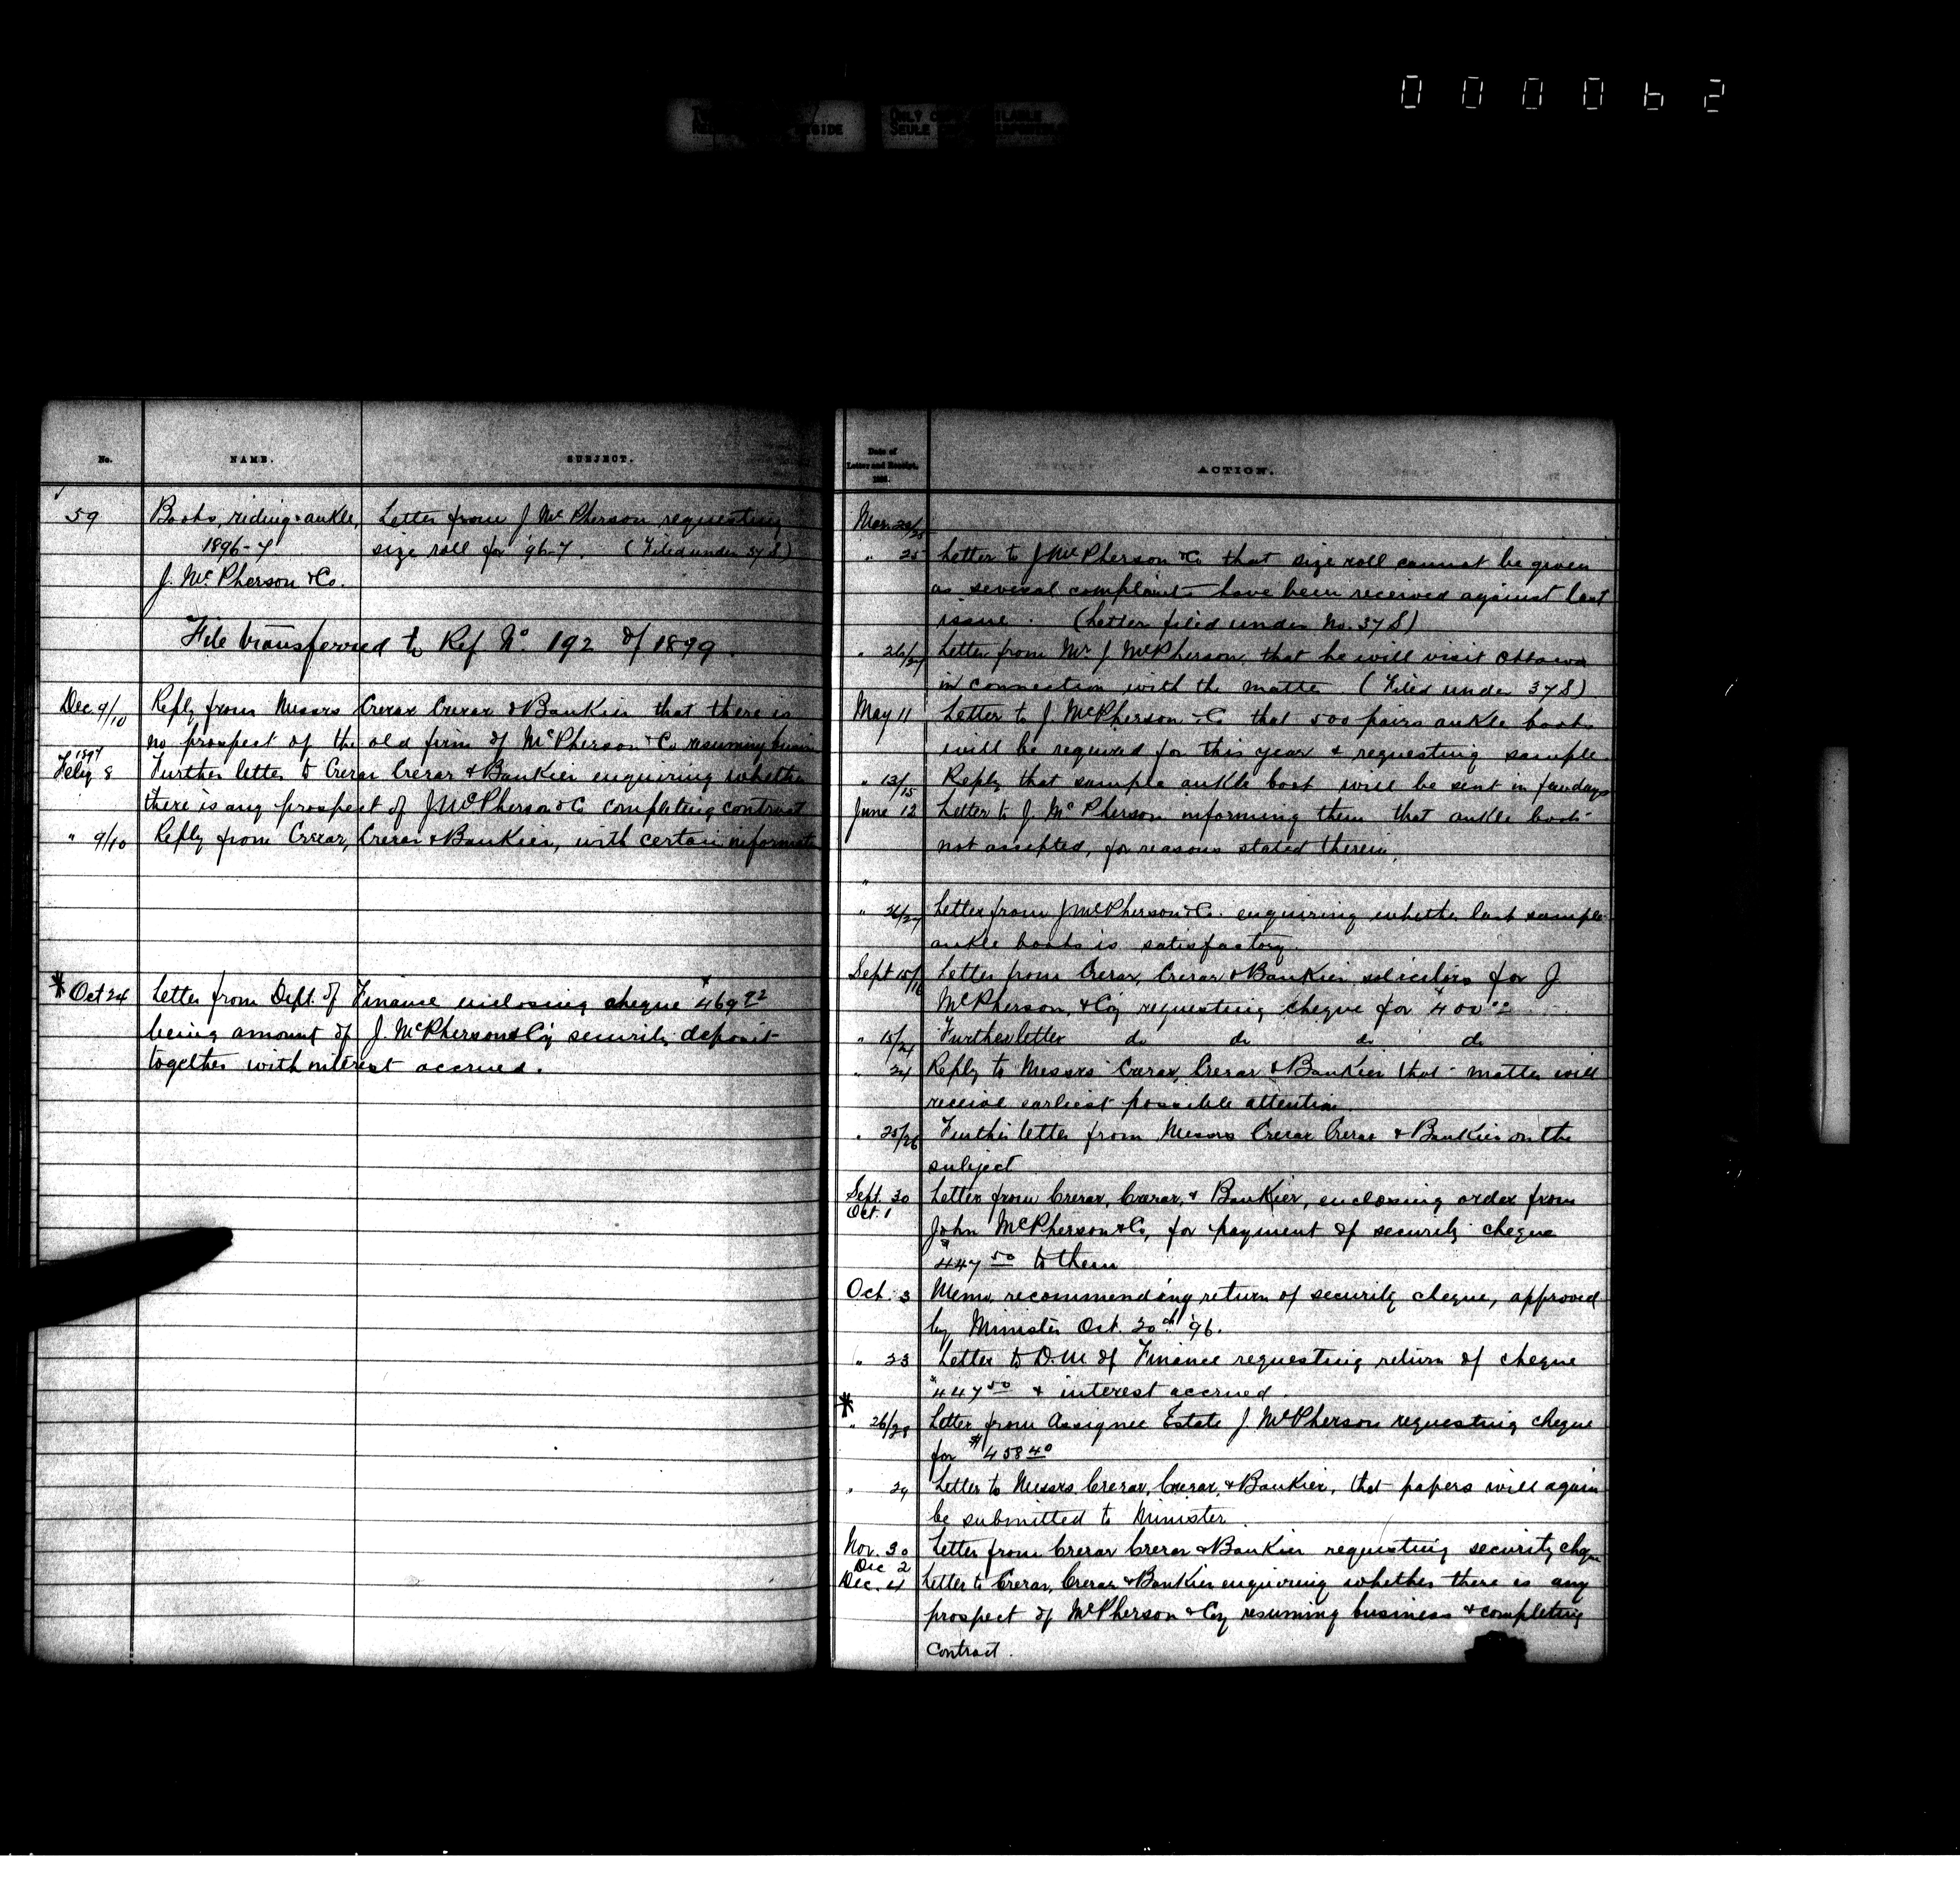 000062
ONLY COPY AVAILABLE
SEULE
No.
NAME.
SUBJECT.
59
Boots, riding & ankle,
1896-7
J. McPherson & Co.
Letter from J McPherson requesting
size roll for 96-7. (Filed under 37S)
File transferred to Ref No. 192 of 1899.
Dec. 9/10 Reply from Messrs Crerar Crerar & Bankier that there is
no prospect of the old firm of McPherson & Co resuming
1897
Feby 8 Further letter to Crerar Crerar & Bankier enquiring whether
there is any prospect of J McPherson & Co completing contract
" 9/10 Reply from Crerar, Crerar & Bankier, with certain
* Oct 24 Letter from Dept. of Finance enclosing cheque $469 92
being amount of J. McPherson & Coy security deposit
together with interest accrued.
Date of
Letter and Receipt.
ACTION.
Mar.
" 25 Letter to J McPherson & Co that size roll cannot be given
as several complaints have been received against last
issue. (Letter filed under No. 37S)
" 26/27 Letter from Mr J McPherson, that he will visit Ottawa
in connection with the matter (Filed under 37S)
May 11 Letter to J. McPherson & Co that 500 pairs ankle boots
will be required for this year & requesting sample.
" 13/15 Reply that sample ankle boot will be sent in few days
June 12 Letter to J. McPherson informing them that ankle boots
not accepted, for reasons stated therein.
"
" 26/27 Letter from J McPherson & Co. enquiring whether last sample
ankle boots is satisfactory.
Sept 15/16 Letter from Crerar, Crerar & Bankier solicitors for J
McPherson, & Coy requesting cheque for $400
" 15/21 Further letter do do do do
" 24 Reply to Messrs Crerar, Crerar & Bankier that matter will
receive earliest possible attention.
" 25/26 Further letter from Messrs Crerar Crerar & Bankier on the
subject
Sept. 30 Letter from Crerar, Crerar, & Bankier, enclosing order from
Oct. 1
John McPherson & Co, for payment of security cheque
$447 50 to them
Oct. 3 Memo, recommending return of security cheque, approved
by Minister Oct. 20th '96.
" 23 Letter to D.M of Finance requesting return of cheque
$447 50 & interest accrued.
*
" 26/28 Letter from Assignee Estate J. McPherson requesting cheque
for $458 40
" 29 Letter to Messrs. Crerar, Crerar, & Bankier, that papers will again
be submitted to Minister.
Nov. 30 Letter from Crerar Crerar & Bankier requesting security cheque
Dec 2
Dec. 4 Letter to Crerar, Crerar & Bankier enquiring whether there is any
prospect of McPherson & Coy resuming business & completing
contract.